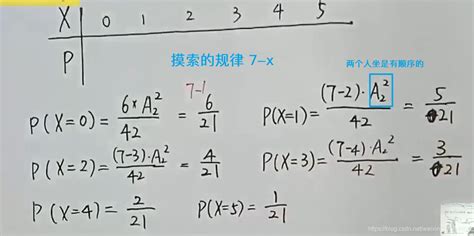 X 0 1 2 3 4 5
P
摸索的规律 7-x
两个人坐是有顺序的
7-1
P(X=0)=\frac{6×A_2^2}{42}=\frac{6}{21}
P(X=1)=\frac{(7-2)·A_2^2}{42}=\frac{5}{21}
P(X=2)=\frac{(7-3)·A_2^2}{42}=\frac{4}{21}
P(X=3)=\frac{(7-4)·A_2^2}{42}=\frac{3}{21}
P(X=4)=\frac{2}{21}
P(X=5)=\frac{1}{21}